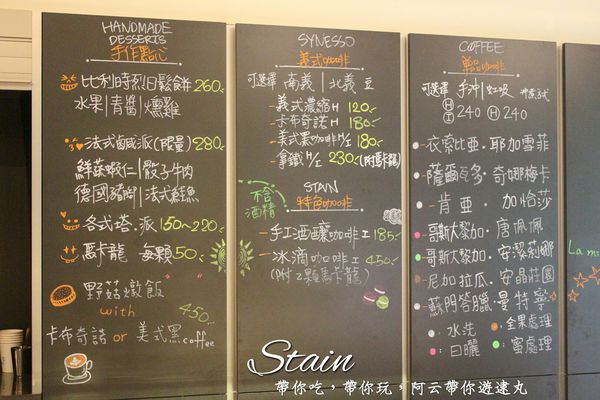 HANDMADE
DESSERTS
手作點心
比利時烈日鬆餅 260
水果|青醬|燻雞
法式鹹派(限量) 280
鮮蔬蝦仁|骰子牛肉
德國豬腳|法式鮭魚
各式塔.派 150~220
馬卡龍 每顆50
野菇燉飯
with 450
卡布奇諾 or 美式黑coffee
SYNESSO
義式咖啡
可選擇 南義|北義 豆
義式濃縮 H 120
卡布奇諾 H 180
美式黑咖啡 H/I 180
拿鐵 H/I 230(附馬卡龍)
不含
酒精
STAIN
特色咖啡
手工酒釀咖啡 I 185
冰滴咖啡 I 450
(附2顆馬卡龍)
COFFEE
單品咖啡
可選擇 手沖|虹吸 沖煮方式
H 240 H 240
I
衣索比亞.耶加雪菲
薩爾瓦多.奇娜梅卡
肯亞.加恰莎
哥斯大黎加.唐佩佩
哥斯大黎加.安潔莉娜
尼加拉瓜.安晶莊園
蘇門答臘.曼特寧
:水洗 :全果處理
:日曬 :蜜處理
La m
Stain
帶你吃，帶你玩，阿云帶你遊達丸